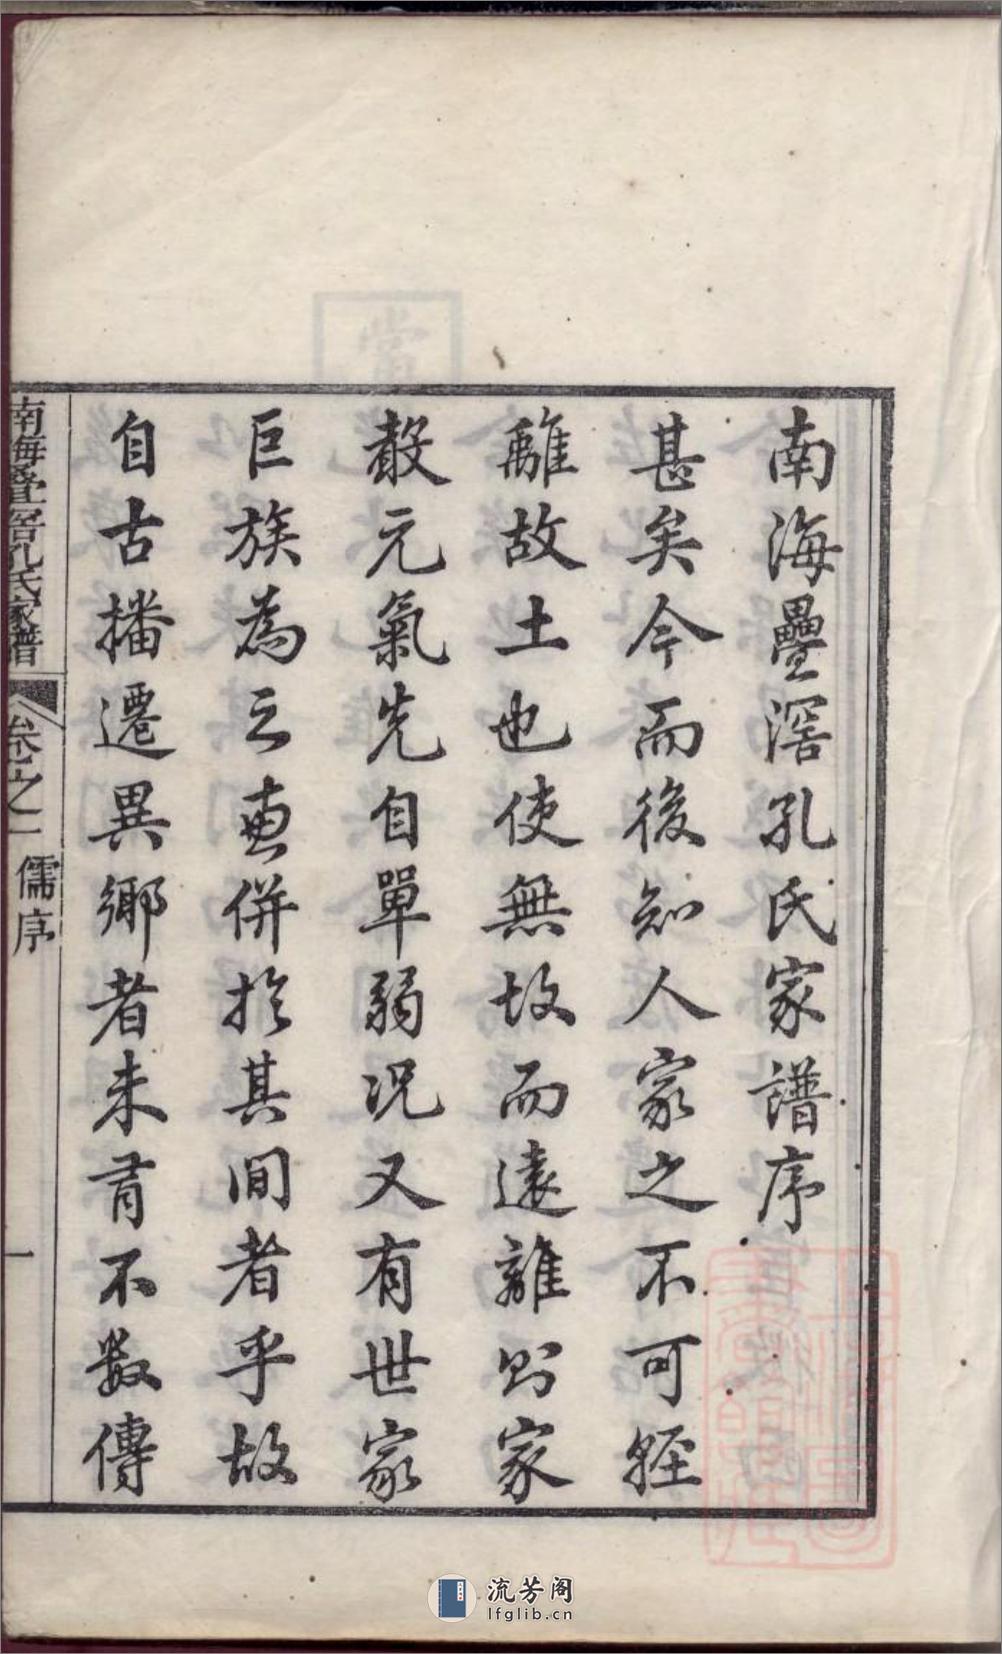 南海疊滘孔氏家譜序
甚矣今而後知人家之不可輕
離故土也使無故而遠離則家
散元氣先自單弱况又有世家
巨族為之兼併於其間者乎故
自古播遷異鄉者未有不數傳
南海疊滘孔氏家譜
卷之一
儒序
一
流芳阁
lfglib.cn